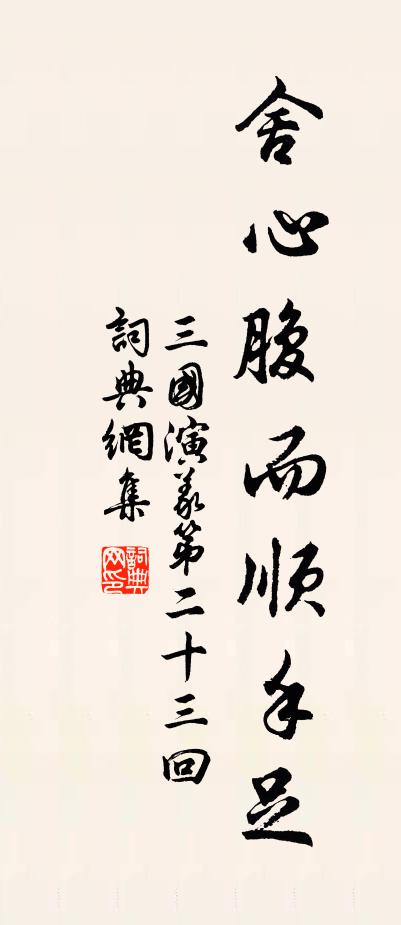 舍心腹而順手足
三國演義第二十三回
詞典網集
詞典網印